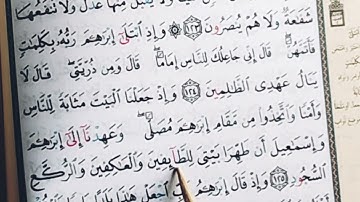 شَفَٰعَةٌ وَلَا هُمْ يُنصَرُونَ ١٢٣ ۞ وَإِذِ ٱبْتَلَىٰٓ إِبْرَٰهِـۧمَ رَبُّهُۥ بِكَلِمَٰتٍ
فَأَتَمَّهُنَّ ۖ قَالَ إِنِّى جَاعِلُكَ لِلنَّاسِ إِمَامًا ۖ قَالَ وَمِن ذُرِّيَّتِى ۖ قَالَ لَا
يَنَالُ عَهْدِى ٱلظَّٰلِمِينَ ١٢٤ وَإِذْ جَعَلْنَا ٱلْبَيْتَ مَثَابَةً لِّلنَّاسِ
وَأَمْنًا وَٱتَّخِذُوا۟ مِن مَّقَامِ إِبْرَٰهِـۧمَ مُصَلًّى ۖ وَعَهِدْنَآ إِلَىٰٓ إِبْرَٰهِـۧمَ
وَإِسْمَٰعِيلَ أَن طَهِّرَا بَيْتِىَ لِلطَّآئِفِينَ وَٱلْعَٰكِفِينَ وَٱلرُّكَّعِ
ٱلسُّجُودِ ١٢٥ وَإِذْ قَالَ إِبْرَٰهِـۧمُ رَبِّ ٱجْعَلْ هَٰذَا بَلَدًا